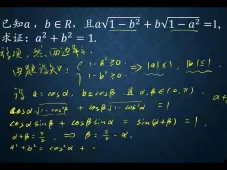 已知a，b∈R，且a√1-b² + b√1-a² =1,
求证：a² + b² = 1.
移项，然后两边平方
由题设知: { 1-b²≥0 ⟹ |a|≤1, |b|≤1.
1-a²≥0
设 a=cosα, b=cosβ 且 α,β∈(0,π).
cosα√1-cos²β + cosβ√1-cos²α = 1
cosα sinβ + cosβ sinα = sin(α+β) = 1
α+β=π/2 ⟹ β=π/2-α.
a²+b² = cos²α +